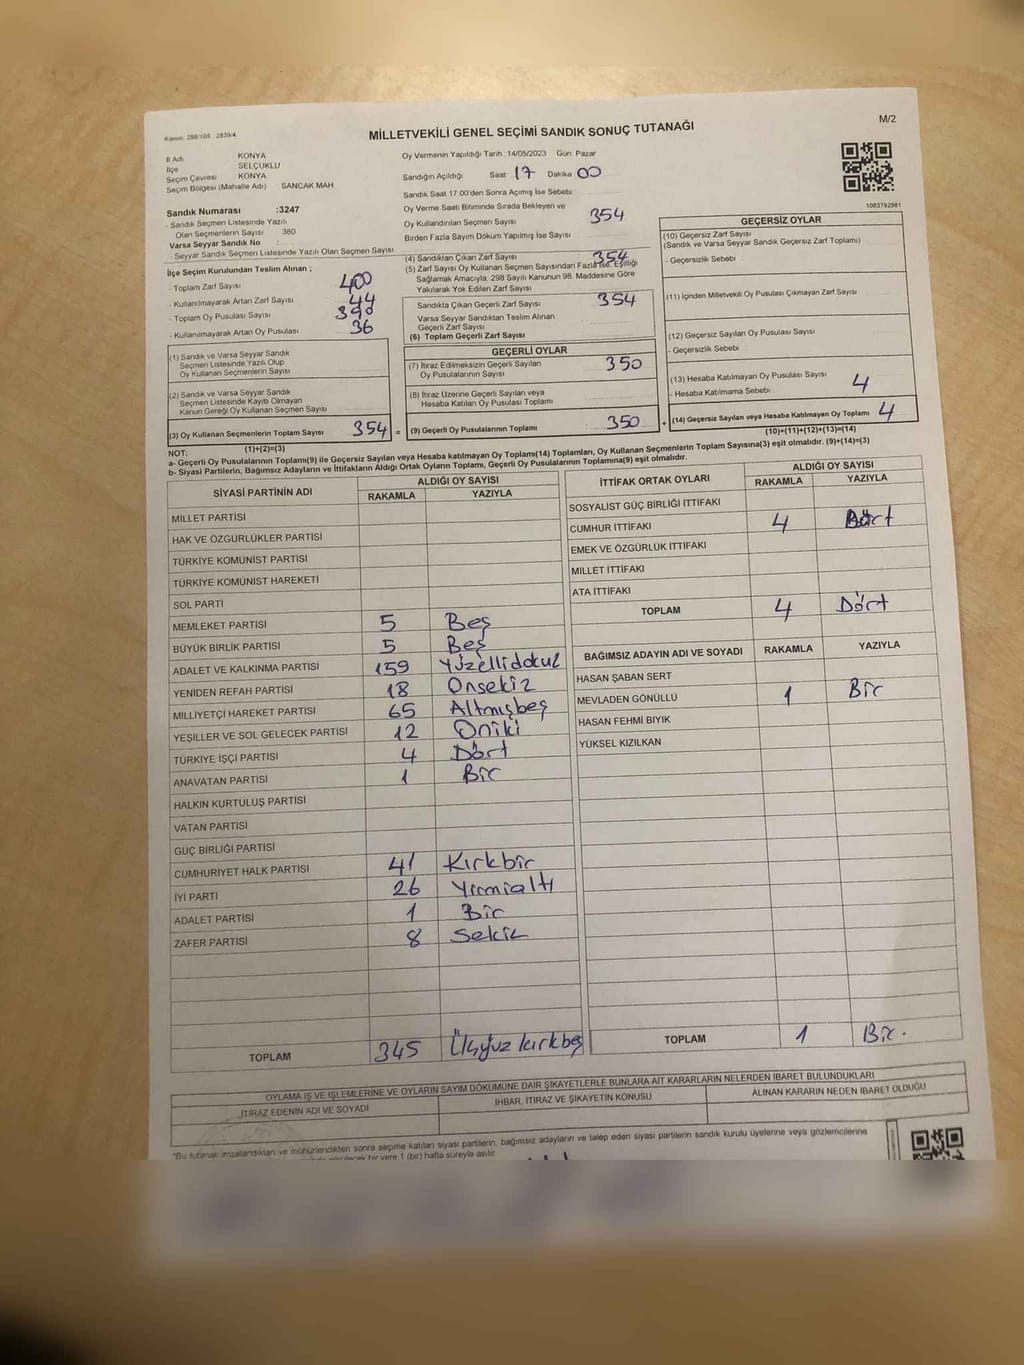 Kanun: 298/105 2839/4
MİLLETVEKİLİ GENEL SEÇİMİ SANDIK SONUÇ TUTANAĞI
M/2
İl Adı KONYA
İlçe SELÇUKLU
Seçim Çevresi KONYA
Seçim Bölgesi (Mahalle Adı) SANCAK MAH.
Sandık Numarası :3247
- Sandık Seçmen Listesinde Yazılı
Olan Seçmenlerin Sayısı 380
Varsa Seyyar Sandık No
- Seyyar Sandık Seçmen Listesinde Yazılı Olan Seçmen Sayısı
İlçe Seçim Kurulundan Teslim Alınan ;
- Toplam Zarf Sayısı 400
- Kullanılmayarak Artan Zarf Sayısı 44
- Toplam Oy Pusulası Sayısı 390
- Kullanılmayarak Artan Oy Pusulası 36
(1) Sandık ve Varsa Seyyar Sandık
Seçmen Listesinde Yazılı Olup
Oy Kullanan Seçmenlerin Sayısı
(2) Sandık ve Varsa Seyyar Sandık
Seçmen Listesinde Kayıtlı Olmayan
Kanun Gereği Oy Kullanan Seçmen Sayısı
(3) Oy Kullanan Seçmenlerin Toplam Sayısı 354 =
(1)+(2)=(3)
Oy Vermenin Yapıldığı Tarih 14/05/2023 Gün Pazar
Sandığın Açıldığı Saat 17 Dakika 00
Sandık Saat 17.00'den Sonra Açımış İse Sebebi
Oy Verme Saati Bitiminde Sırada Bekleyen ve
Oy Kullandırılan Seçmen Sayısı 354
Birden Fazla Sayım Döküm Yapılmış İse Sayısı
(4) Sandıktan Çıkan Zarf Sayısı 354
(5) Zarf Sayısı Oy Kullanan Seçmen Sayısından Fazla İse, Eşitliği
Sağlamak Amacıyla, 298 Sayılı Kanunun 98. Maddesine Göre
Yakılarak Yok Edilen Zarf Sayısı
Sandıkta Çıkan Geçerli Zarf Sayısı 354
Varsa Seyyar Sandıktan Teslim Alınan
Geçerli Zarf Sayısı
(6) Toplam Geçerli Zarf Sayısı
GEÇERLİ OYLAR
(7) İtiraz Edilmeksizin Geçerli Sayılan
Oy Pusulalarının Sayısı 350
(8) İtiraz Üzerine Geçerli Sayılan veya
Hesaba Katılan Oy Pusulası Toplamı
(9) Geçerli Oy Pusulalarının Toplamı 350 +
1083792981
GEÇERSİZ OYLAR
(10) Geçersiz Zarf Sayısı
(Sandık ve Varsa Seyyar Sandık Geçersiz Zarf Toplamı)
- Geçersizlik Sebebi
(11) İçinden Milletvekili Oy Pusulası Çıkmayan Zarf Sayısı
(12) Geçersiz Sayılan Oy Pusulası Sayısı
- Geçersizlik Sebebi
(13) Hesaba Katılmayan Oy Pusulası Sayısı 4
- Hesaba Katılmama Sebebi
(14) Geçersiz Sayılan veya Hesaba Katılmayan Oy Toplamı 4
(10)+(11)+(12)+(13)=(14)
NOT:
a- Geçerli Oy Pusulalarının Toplamı(9) ile Geçersiz Sayılan veya Hesaba katılmayan Oy Toplamı(14) Toplamları, Oy Kullanan Seçmenlerin Toplam Sayısına(3) eşit olmalıdır. (9)+(14)=(3)
b- Siyasi Partilerin, Bağımsız Adayların ve İttifakların Aldığı Ortak Oyların Toplamı, Geçerli Oy Pusulalarının Toplamına(9) eşit olmalıdır.
SİYASİ PARTİNİN ADI ALDIĞI OY SAYISI
RAKAMLA YAZIYLA
MİLLET PARTİSİ
HAK VE ÖZGÜRLÜKLER PARTİSİ
TÜRKİYE KOMÜNİST PARTİSİ
TÜRKİYE KOMÜNİST HAREKETİ
SOL PARTİ
MEMLEKET PARTİSİ 5 Beş
BÜYÜK BİRLİK PARTİSİ 5 Beş
ADALET VE KALKINMA PARTİSİ 159 Yüzellidokuz
YENİDEN REFAH PARTİSİ 18 Onsekiz
MİLLİYETÇİ HAREKET PARTİSİ 65 Altmışbeş
YEŞİLLER VE SOL GELECEK PARTİSİ 12 Oniki
TÜRKİYE İŞÇİ PARTİSİ 4 Dört
ANAVATAN PARTİSİ 1 Bir
HALKIN KURTULUŞ PARTİSİ
VATAN PARTİSİ
GÜÇ BİRLİĞİ PARTİSİ
CUMHURİYET HALK PARTİSİ 41 Kırkbir
İYİ PARTİ 26 Yirmialtı
ADALET PARTİSİ 1 Bir
ZAFER PARTİSİ 8 Sekiz
TOPLAM 345 Üçyüz kırkbeş
İTTİFAK ORTAK OYLARI ALDIĞI OY SAYISI
RAKAMLA YAZIYLA
SOSYALİST GÜÇ BİRLİĞİ İTTİFAKI
CUMHUR İTTİFAKI 4 Dört
EMEK VE ÖZGÜRLÜK İTTİFAKI
MİLLET İTTİFAKI
ATA İTTİFAKI
TOPLAM 4 Dört
BAĞIMSIZ ADAYIN ADI VE SOYADI RAKAMLA YAZIYLA
HASAN ŞABAN SERT
MEVLADEN GÖNÜLLÜ 1 Bir
HASAN FEHMİ BIYIK
YÜKSEL KIZILKAN
TOPLAM 1 Bir.
OYLAMA İŞ VE İŞLEMLERİNE VE OYLARIN SAYIM DÖKÜMÜNE DAİR ŞİKAYETLERLE BUNLARA AİT KARARLARIN NELERDEN İBARET BULUNDUKLARI
İTİRAZ EDENİN ADI VE SOYADI İHBAR, İTİRAZ VE ŞİKAYETİN KONUSU ALINAN KARARIN NEDEN İBARET OLDUĞU
*Bu tutanak imzalandıktan ve mühürlendikten sonra seçime katılan siyasi partilerin, bağımsız adayların ve talep eden siyasi partilerin sandık kurulu üyelerine veya gözlemcilerine
bir yere 1 (bir) hafta süreyle asılır.